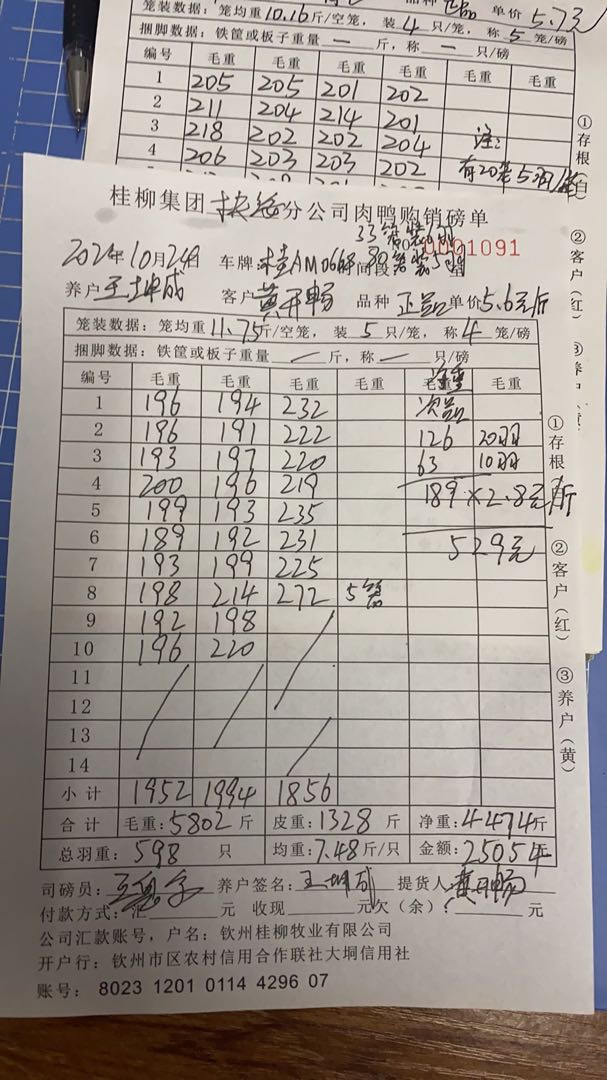 笼装数据：笼均重10.16斤/空笼，装4只/笼，称5笼/磅
单价5.73元
捆脚数据：铁筐或板子重量一斤，称一只/磅
编号 毛重 毛重 毛重 毛重 毛重 毛重
1 205 205 201 202
2 211 204 214 201
3 218 202 202 204 注:
4 206 203 203 202 有20笼5羽/笼
①存根(白)
②客户(红)
桂柳集团扶绥分公司肉鸭购销磅单
33笼装6羽
No 0001091
2024年10月24日 车牌:AM066 时间段 80笼装5羽
养户王坤成 客户黄开畅 品种正品 单价5.6元/斤
笼装数据：笼均重11.75斤/空笼，装5只/笼，称4笼/磅
捆脚数据：铁筐或板子重量一斤，称一只/磅
编号 毛重 毛重 毛重 毛重 毛重 毛重
1 196 194 232 次品
2 196 191 222 126 20羽
3 193 197 220 63 10羽
4 200 196 219 189×2.8元/斤
5 199 193 235
6 189 192 231 529元
7 193 199 225
8 198 214 272 5笼
9 192 198
10 196 220
11
12
13
14
小计 1952 1994 1856
合计 毛重:5802斤 皮重:1328斤 净重:4474斤
总羽重:598只 均重:7.48斤/只 金额:25054
司磅员: 养户签名:王坤成 提货人:黄开畅
付款方式:汇 元 收现 元欠（余）: 元
公司汇款账号，户名：钦州桂柳牧业有限公司
开户行：钦州市区农村信用合作联社大垌信用社
账号：8023 1201 0114 4296 07
①存根
②客户(红)
③养户(黄)